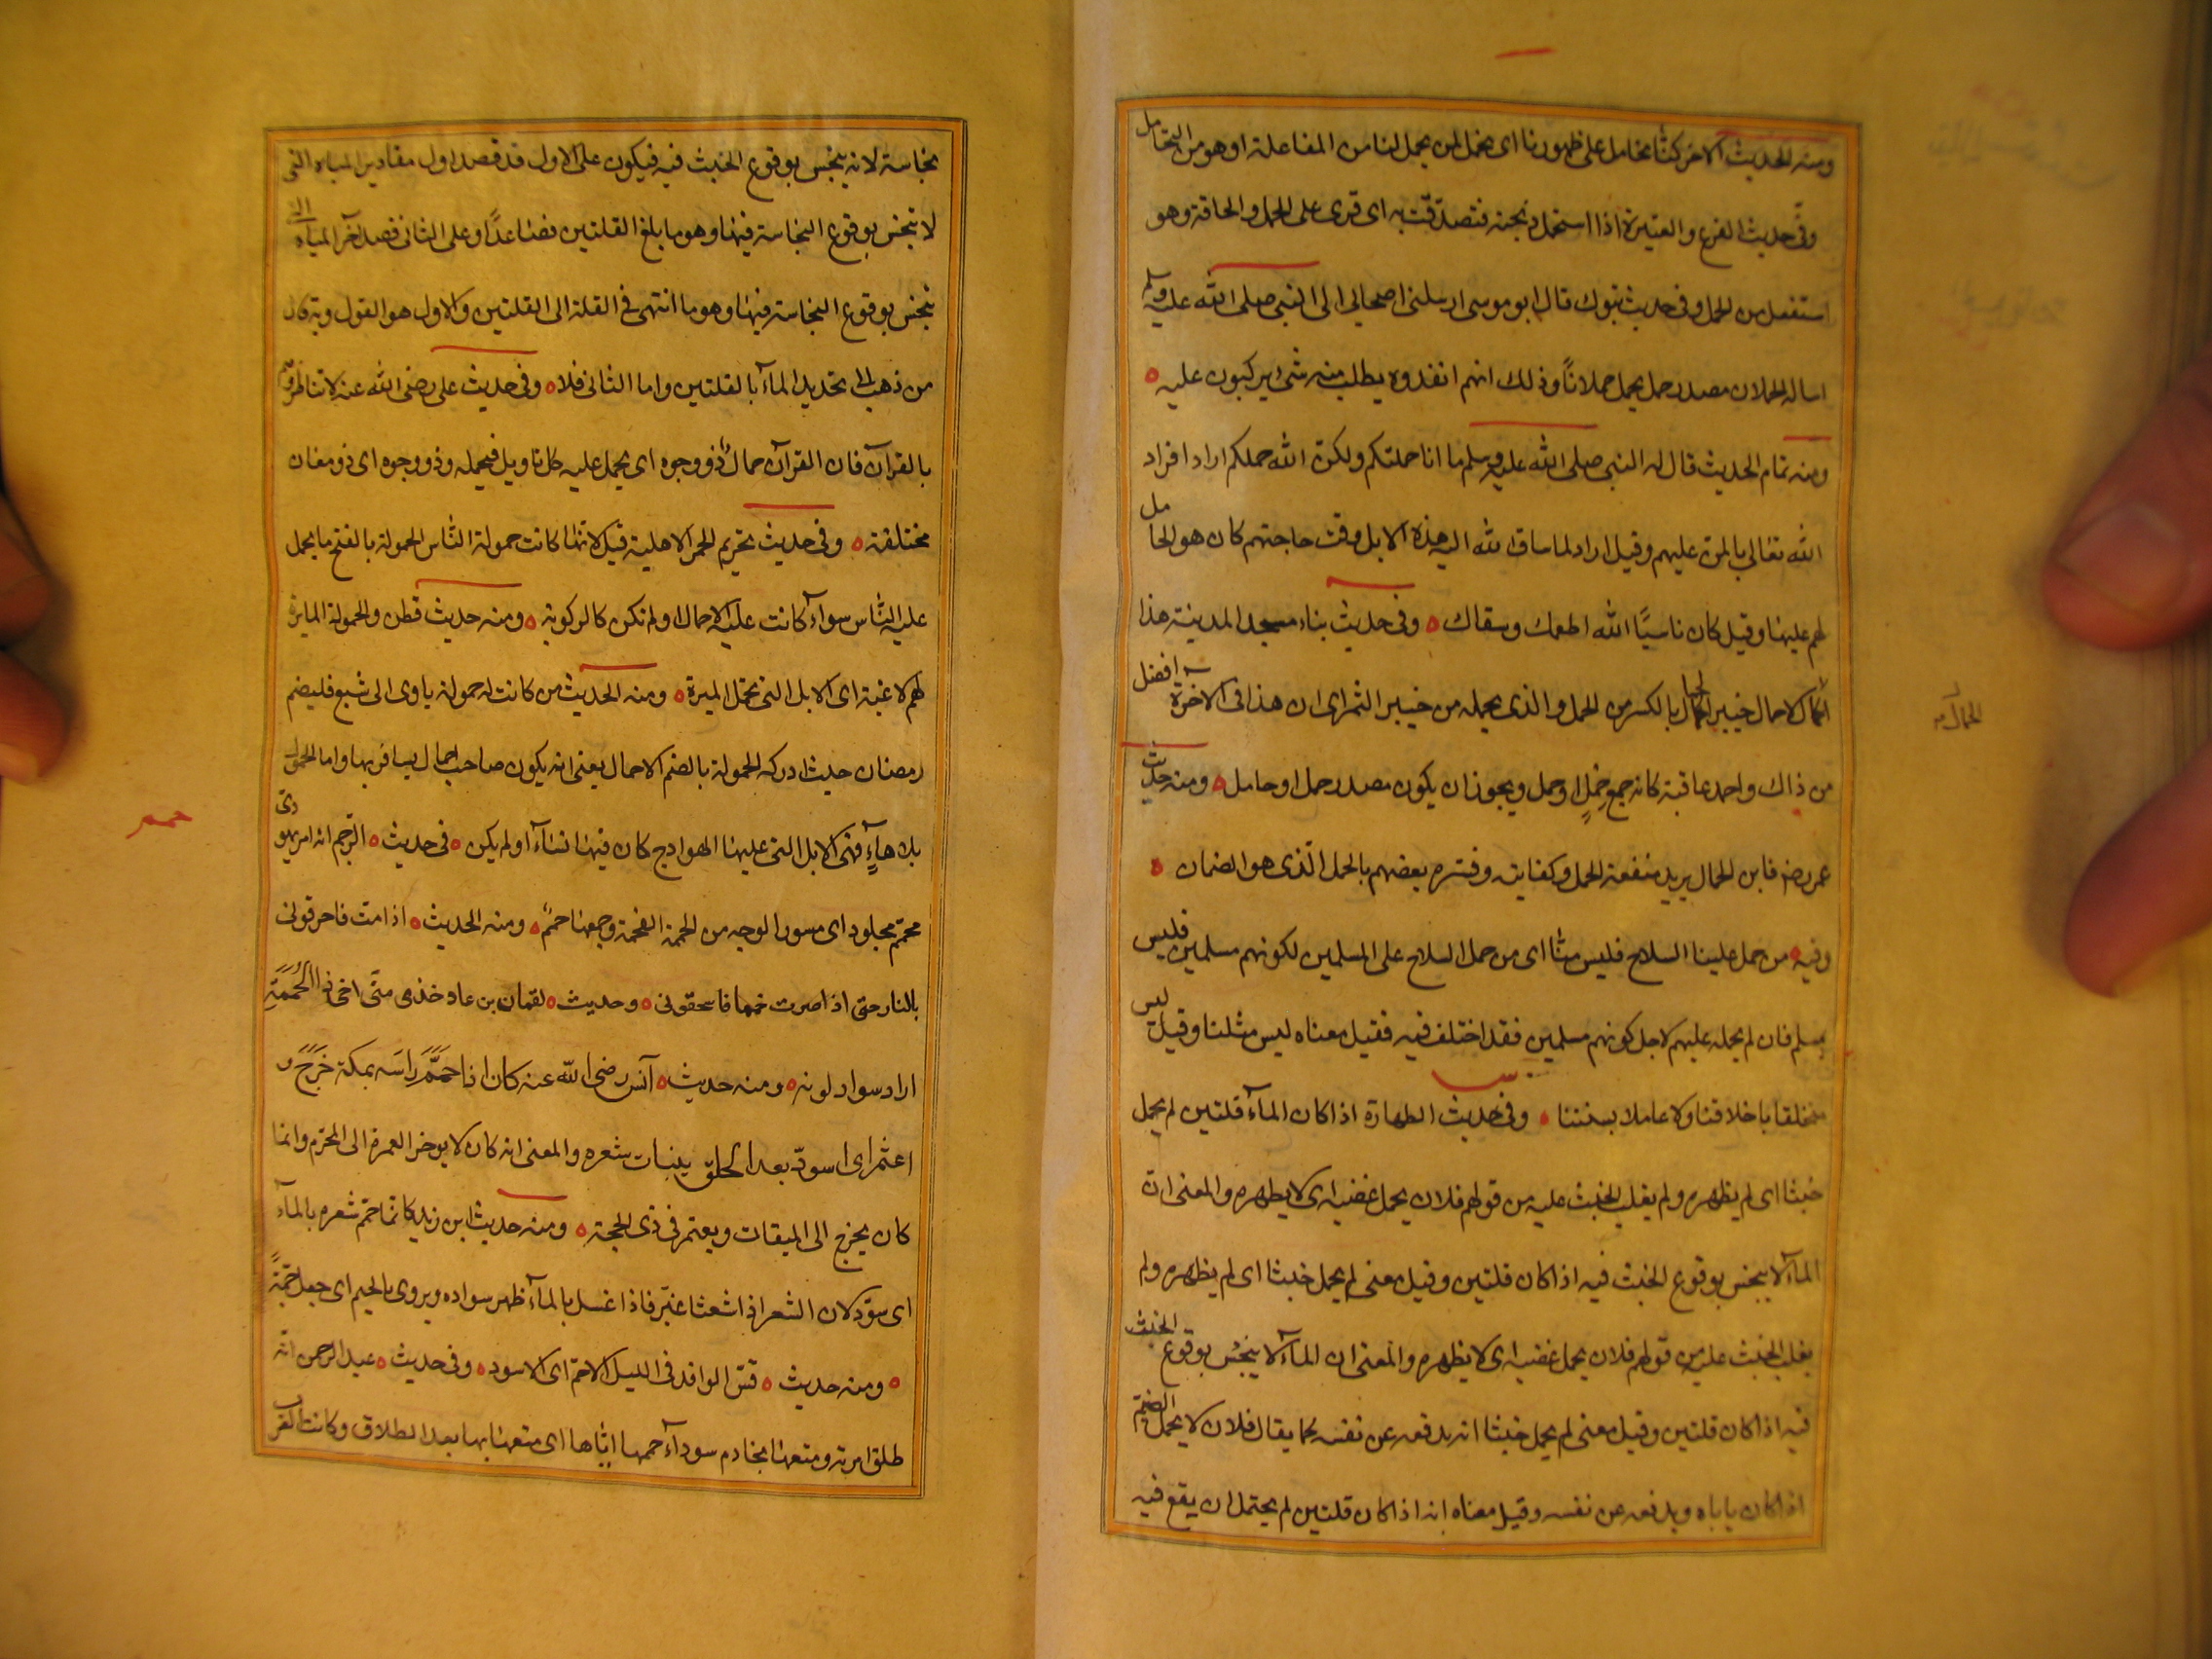 ومنه الحديث الاخر كنّا نحامل على ظهورنا اى نحمل لمن يحمل لنا من المفاعلة او هو من التحامل
وفى حديث الفرع والعتيرة اذا استحمل ذبحته فتصدقت به اى قوى على الحمل والطاقة وهو
استفعل من الحمل وفى حديث تبوك قال ابو موسى ارسلنى اصحابى الى النبى صلى الله عليه وسلم
اساله الحملان مصدر حمل يحمل حملاناً وذلك انهم انفدوه يطلب منه شئ يركبون عليه
ومنه تمام الحديث قال له النبى صلى الله عليه وسلم ما انا حملتكم ولكن الله حملكم اراد افراد
الله تعالى بالمن عليهم وقيل اراد لما ساق الله اليه هذه الابل وقت حاجتهم كان هو الحامل
لهم عليها وقيل كان ناسيًا الله اطعمك وسقاك وفى حديث بناء مسجد المدينة هذا
الحمال لاحمال خيبر الحمال بالكسر من الحمل والذى يحمله من خيبر الثمر اى ان هذا فى الاخرة افضل
من ذاك واحمد عاقبة كانه جمع حِمْلٍ او حمل ويجوز ان يكون مصدر حمل او حامل ومنه حديث
عمر رضه فاين الحمال يريد منفعة الحمل وكفايته وفسره بعضهم بالحمل الّذى هو الضمان
وفيه من حمل علينا السلاح فليس منّا اى من حمل السلاح على المسلمين لكونهم مسلمين فليس
بمسلم فان لم يحمله عليهم لاجل كونهم مسلمين فقد اختلف فيه فقيل معناه ليس مثلنا وقيل ليس
متخلقا باخلاقنا ولا عاملا بسنتنا وفى حديث الطهارة اذا كان المآء قلتين لم يحمل
خبثا اى لم يظهره ولم يغلب الخبث عليه من قولهم فلان يحمل غضبه اى لا يظهره والمعنى ان
المآء لا ينجس بوقوع الخبث فيه اذا كان قلتين وقيل معنى لم يحمل خبثا اى لم يظهره ولم
يغلب الخبث عليه من قولهم فلان يحمل غضبه اى لا يظهره والمعنى ان المآء لا ينجس بوقوع الخبث
فيه اذا كان قلتين وقيل معنى لم يحمل خبثا انه يدفعه عن نفسه كما يقال فلان لا يحمل الضيم
اذا كان ياباه ويدفعه عن نفسه وقيل معناه انه اذا كان قلتين لم يحتمل ان يقع فيه
الحمال
نجاسة لانه ينجس بوقوع الخبث فيه فيكون على الاول قد قصد اول مقادير المياه التى
لا تنجس بوقوع النجاسة فيها وهو ما بلغ القلتين فصاعدًا وعلى الثانى قصد آخر المياه التى
تنجس بوقوع النجاسة فيها وهو ما انتهى فى القلة الى القلتين والاول هو القول وبه قال
من ذهب الى تحديد المآء بالقلتين واما الثانى فلا وفى حديث على رضى الله عنه لا تناظروهم
بالقرآن فان القرآن حمالٌ ذو وجوه اى يحمل عليه كل تاويل فيحمله وذو وجوه اى ذو معان
مختلفة وفى حديث تحريم الحمر الاهلية قيل لانها كانت حمولة النّاس الحمولة بالفتح ما يحمل
عليه النّاس سوآء كانت عليه الاحمال او لم تكن كالركوبة ومنه حديث قطن والحمولة المايرة
لهم لاغية اى الابل التى تحمل الميرة ومنه الحديث من كانت له حمولة ياوى الى شبع فليصم
رمضان حيث ادركه الحمولة بالضم الاحمال يعنى انه يكون صاحب احمال يسافر بها واما الحمول
بلا هآءٍ فهى الابل التى عليها الهوادج كان فيها نسآء او لم يكن فى حديث الرّجم انه امر بيهودى
محمّم مجلود اى مسود الوجه من الحممة الفحمة وجمعها حممٌ ومنه الحديث اذا مت فاحرقونى
بالنار حتى اذا صرت حمما فاسحقونى وحديث لقمان بن عاد خذى منّى اخى ذا الحُمَمَةِ
اراد سواد لونه ومنه حديث آنس رضى الله عنه كان اذا حَمَّمَ رَاسَه بمكة خَرَجَ و
اعتمر اى اسودّ بعد الحلق بنبات شعره والمعنى انه كان لا يوخر العمرة الى المحرم وانما
كان يخرج الى الميقات ويعتمر فى ذى الحجة ومنه حديث ابن زيد كانما حمم شعره بالمآء
اى سوّد لان الشعر اذا شعث اغبرّ فاذا غسل بالمآء ظهر سواده ويروى بالجيم اى جعل جمّةً
ومنه حديث قسّ الوافد فى الليل الاحمّ اى الاسود وفى حديث عبد الرحمن انّه
طلق امرته ومتعها بخادم سودآء حممها ايّاها اى متعها بها بعد الطلاق وكانت العرب
حمم